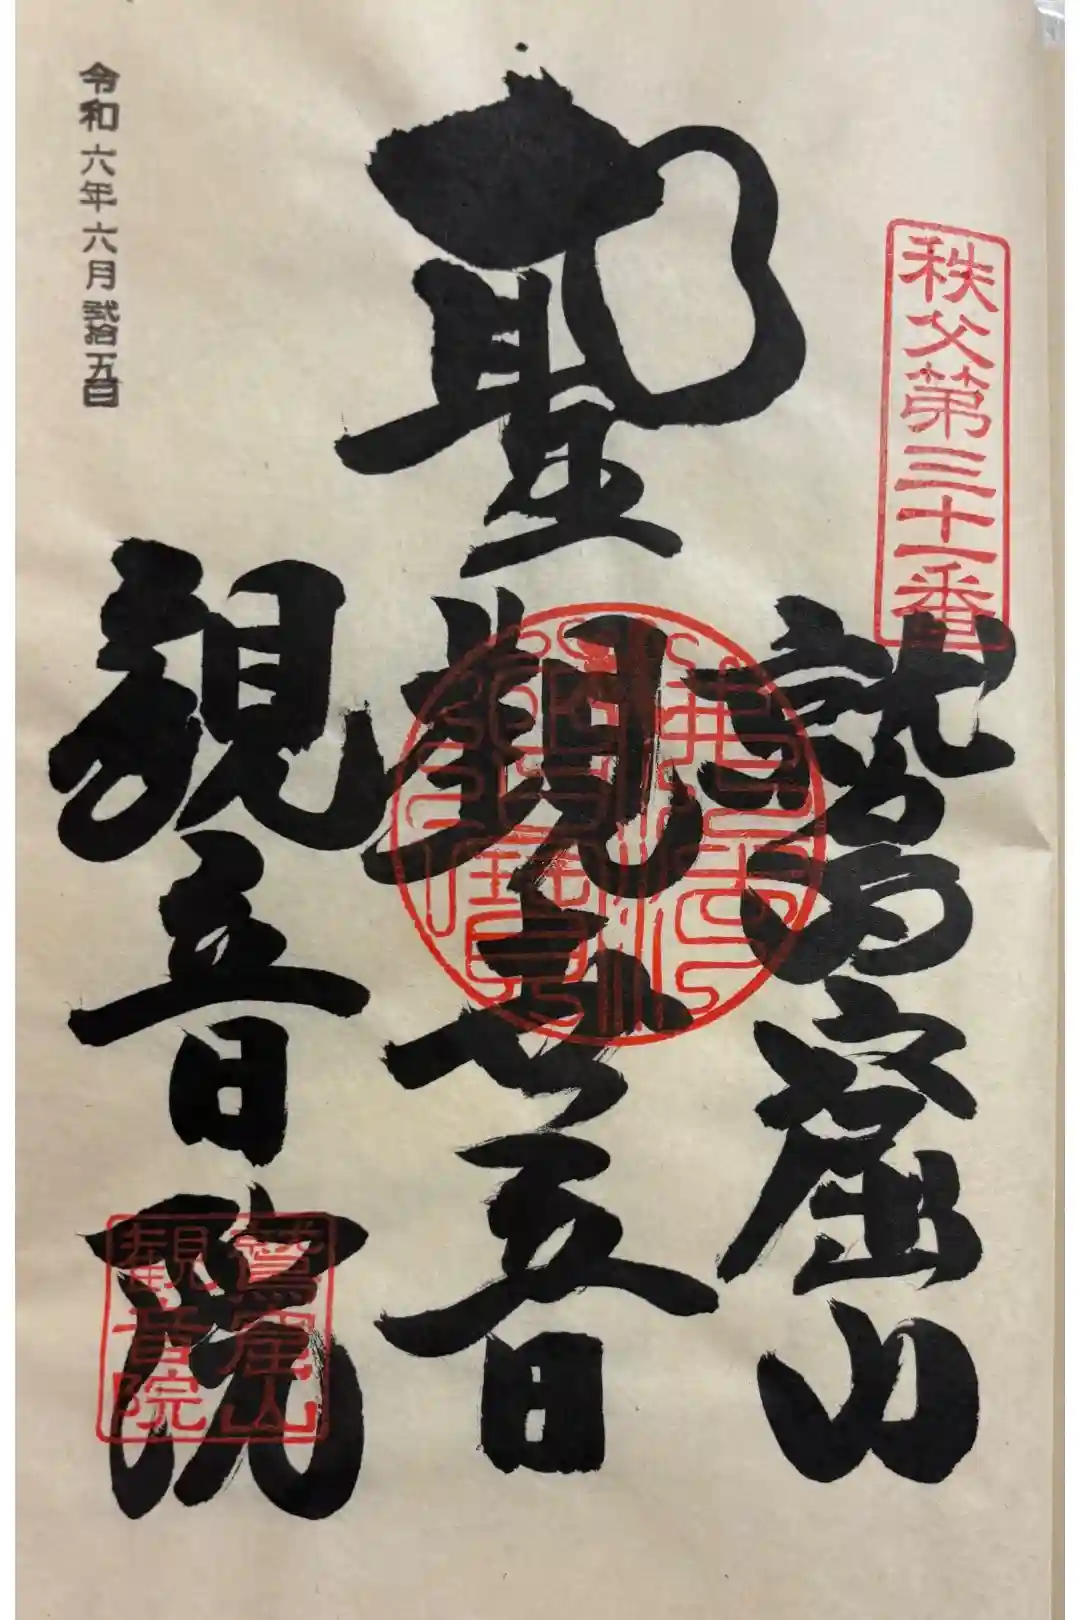 秩父第三十一番
鷲窟山
聖觀世音
観音院
鷲窟山
観音院
令和六年六月弐拾五日